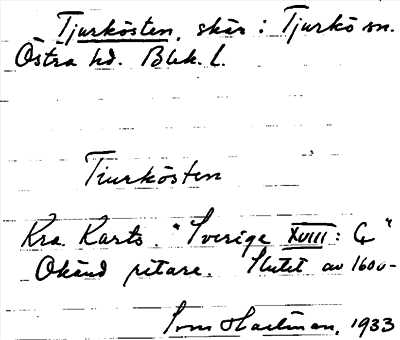 Tjurkösten, skär i Tjurkö sn.
Östra hd. Blek. l.
Tiurkösten
Kra. Karts. "Sverige XVIII: G"
Okänd ritare. Slutet av 1600-
Hartman, 1933